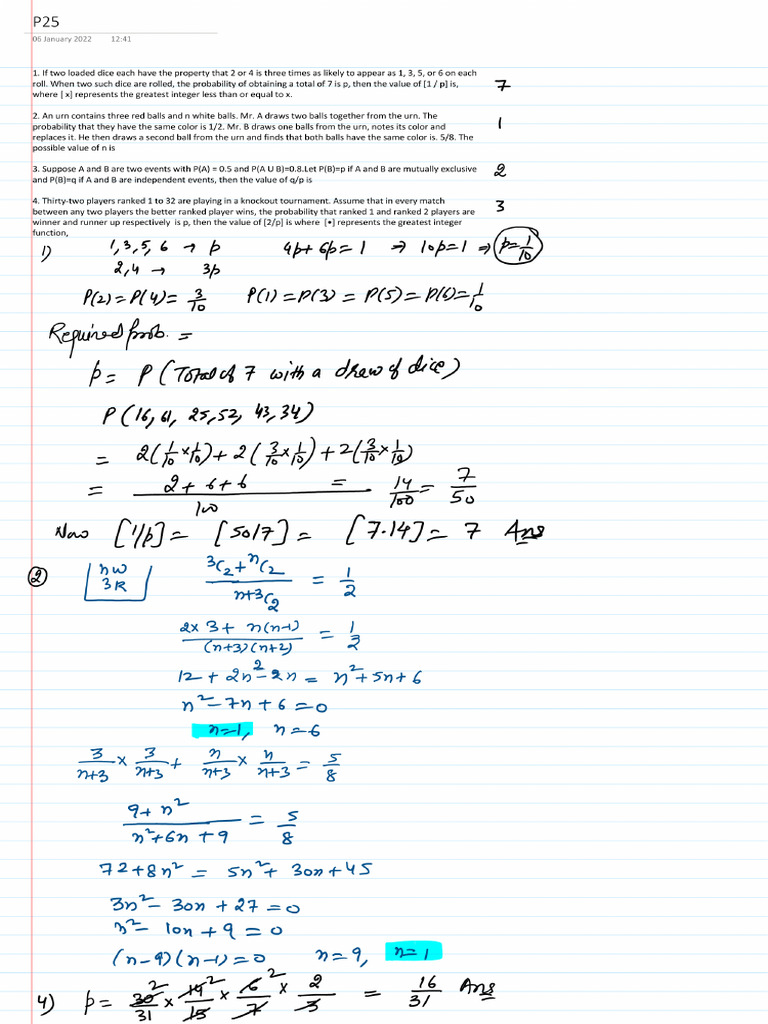 P25
06 January 2022 12:41
1. If two loaded dice each have the property that 2 or 4 is three times as likely to appear as 1, 3, 5, or 6 on each
roll. When two such dice are rolled, the probability of obtaining a total of 7 is p, then the value of [1 / p] is,
where [ x] represents the greatest integer less than or equal to x.
7
2. An urn contains three red balls and n white balls. Mr. A draws two balls together from the urn. The
probability that they have the same color is 1/2. Mr. B draws one balls from the urn, notes its color and
replaces it. He then draws a second ball from the urn and finds that both balls have the same color is. 5/8. The
possible value of n is
1
3. Suppose A and B are two events with P(A) = 0.5 and P(A U B)=0.8.Let P(B)=p if A and B are mutually exclusive
and P(B)=q if A and B are independent events, then the value of q/p is
2
4. Thirty-two players ranked 1 to 32 are playing in a knockout tournament. Assume that in every match
between any two players the better ranked player wins, the probability that ranked 1 and ranked 2 players are
winner and runner up respectively is p, then the value of [2/p] is where [•] represents the greatest integer
function,
3
1) 1,3,5,6 → p 4p+6p=1 ⇒ 10p=1 ⇒ p=1/10
2,4 → 3p
P(2)=P(4)= 3/10 P(1)=P(3)=P(5)=P(6)=1/10
Required prob. =
p= P(Total of 7 with a draw of dice)
P(16,61,25,52,43,34)
= 2(1/10×1/10)+2(3/10×1/10)+2(3/10×1/10)
= (2+6+6)/100 = 14/100 = 7/50
Now [1/p]= [50/7]= [7.14]= 7 Ans
2) nW 3R (³C₂+ⁿC₂)/ⁿ⁺³C₂ = 1/2
(2×3+n(n-1))/((n+3)(n+2)) = 1/2
12+2n²-2n = n²+5n+6
n²-7n+6=0
n=1, n=6
3/(n+3) × 3/(n+3) + n/(n+3) × n/(n+3) = 5/8
(9+n²)/(n²+6n+9) = 5/8
72+8n² = 5n²+30n+45
3n²-30n+27=0
n²-10n+9=0
(n-9)(n-1)=0 n=9, n=1
4) p= 30²/31 × 14²/15 × 6²/7 × 2/3 = 16/31 Ans